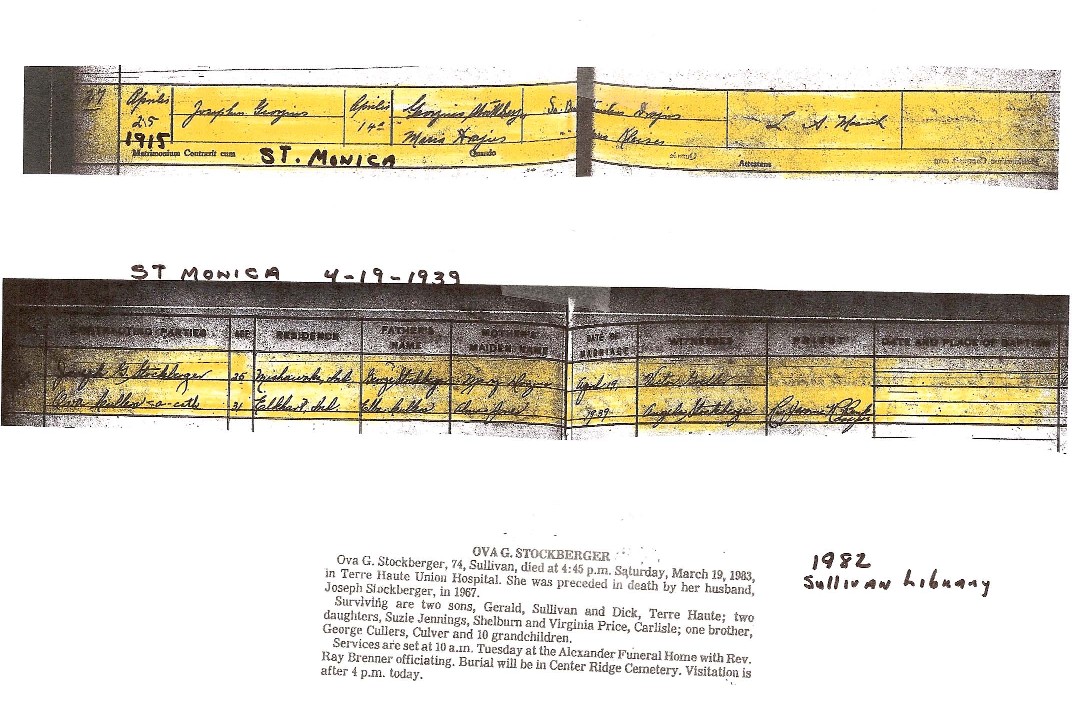 27 Aprilis Josephus Georgius Aprilis Georgius
25 14ª L. A.
1915 Maria
Matrimonium Contraxit cum ST. MONICA Quando Attestans
ST MONICA 4-19-1939
CONTRACTING PARTIES AGE RESIDENCE FATHER'S NAME MOTHER'S MAIDEN NAME DATE OF MARRIAGE WITNESSES PRIEST DATE AND PLACE OF BAPTISM
Joseph G. Stockberger 26 Mishawaka, Ind. George Stockberger April 19
31 Elkhart, Ind. 1939 Stockberger
OVA G. STOCKBERGER
Ova G. Stockberger, 74, Sullivan, died at 4:45 p.m. Saturday, March 19, 1983,
in Terre Haute Union Hospital. She was preceded in death by her husband,
Joseph Stockberger, in 1967.
Surviving are two sons, Gerald, Sullivan and Dick, Terre Haute; two
daughters, Suzie Jennings, Shelburn and Virginia Price, Carlisle; one brother,
George Cullers, Culver and 10 grandchildren.
Services are set at 10 a.m. Tuesday at the Alexander Funeral Home with Rev.
Ray Brenner officiating. Burial will be in Center Ridge Cemetery. Visitation is
after 4 p.m. today.
1982
Sullivan Library